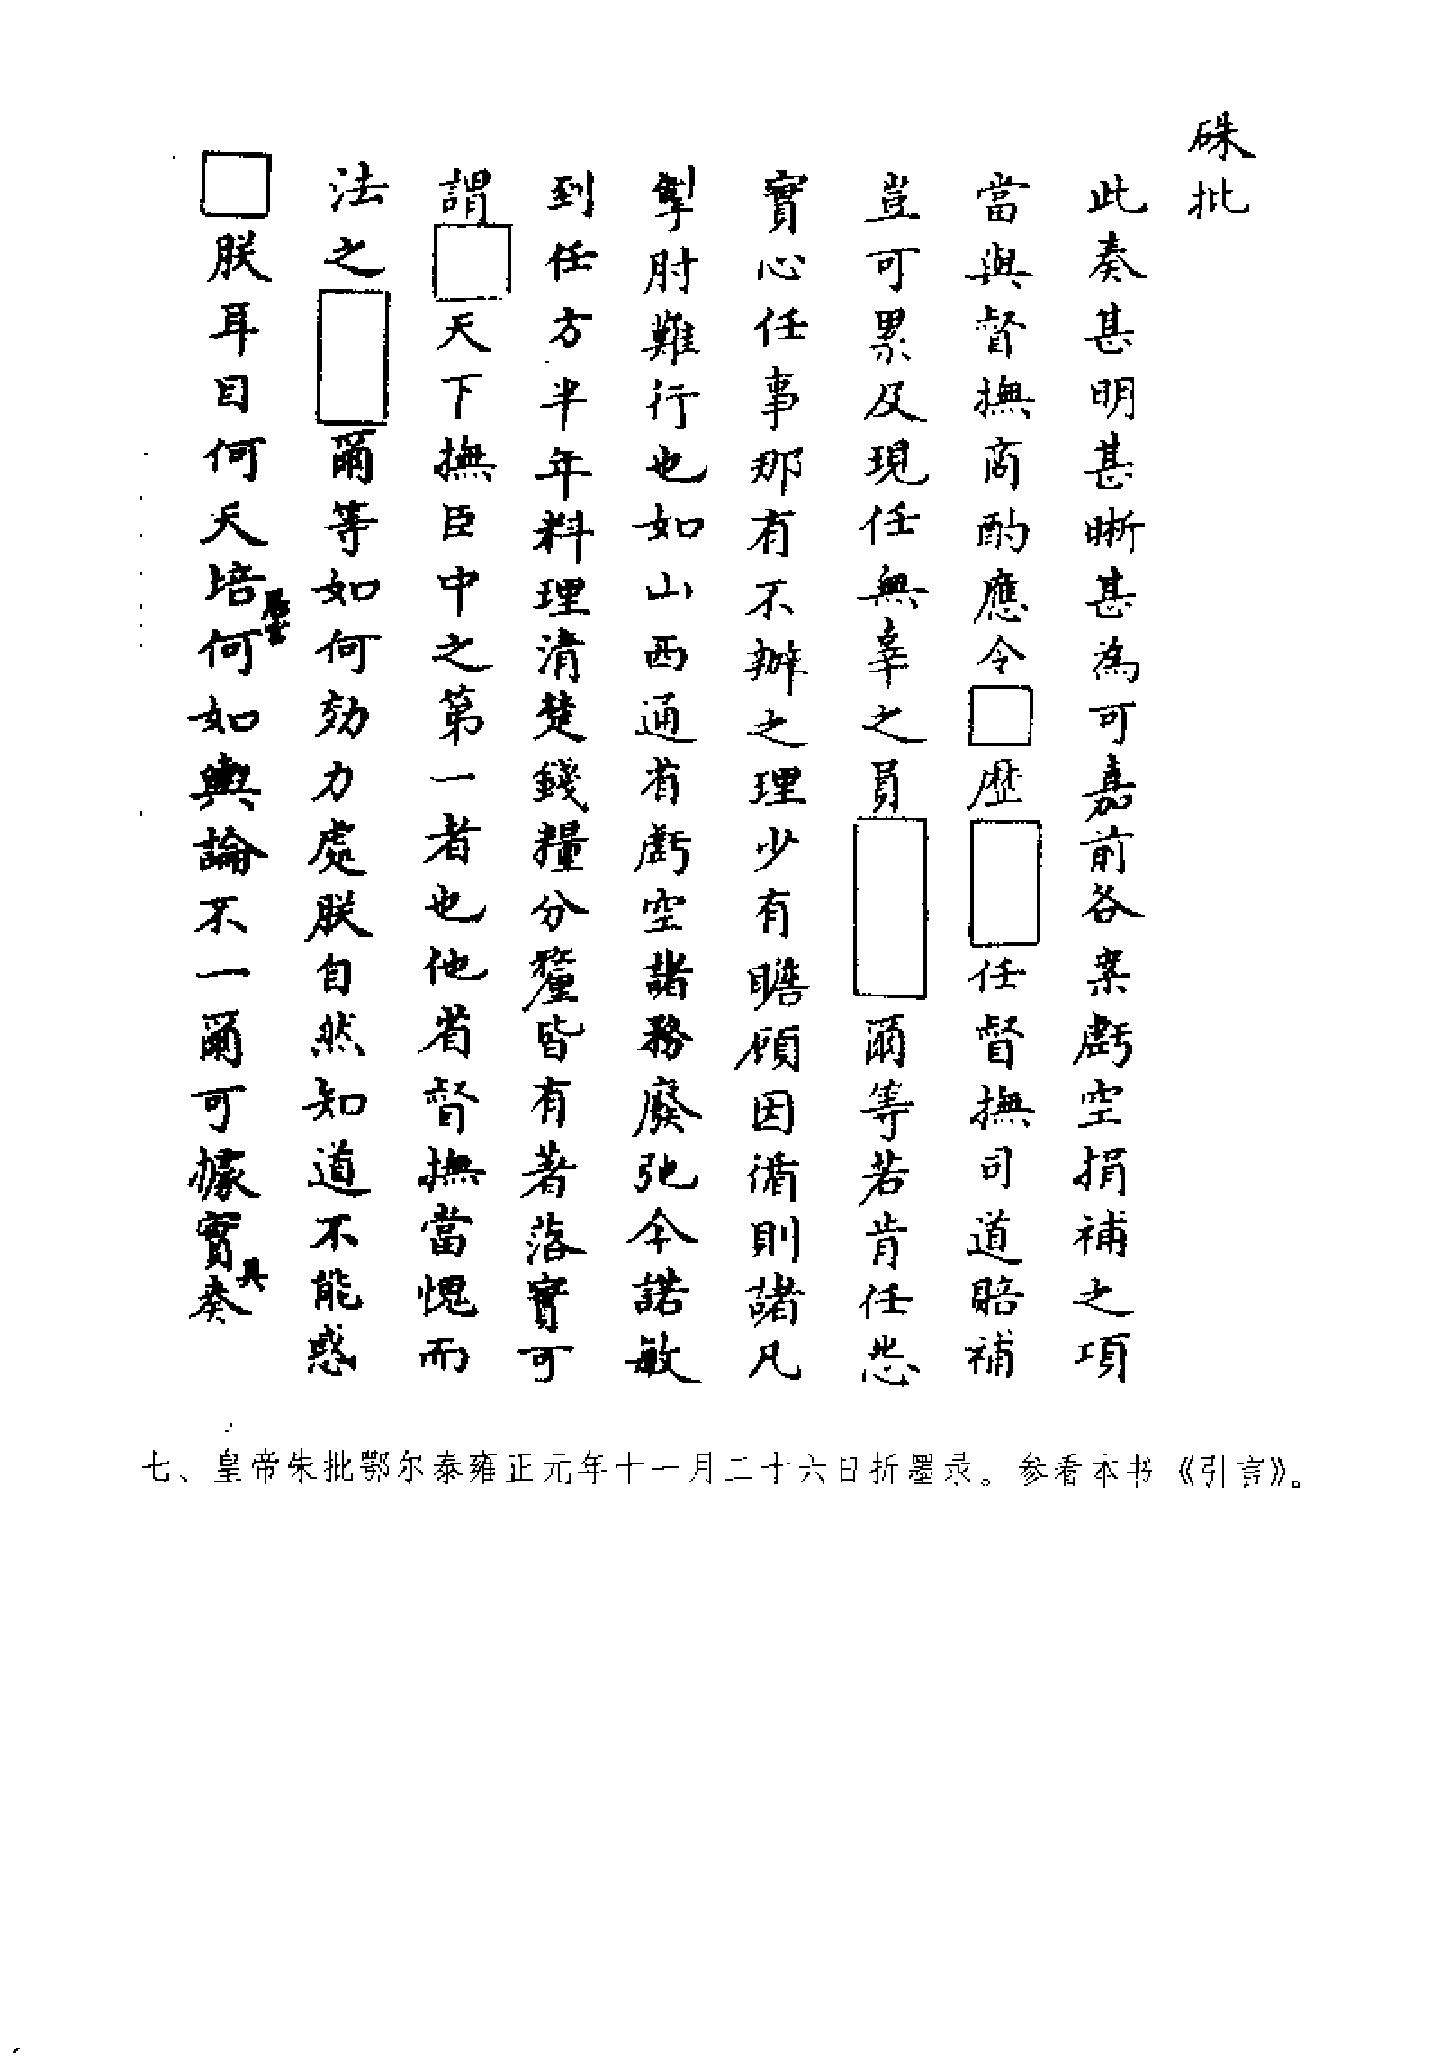 硃批
此奏甚明甚晰甚為可嘉前各案虧空捐補之項
當與督撫商酌應令□歷□任督撫司道賠補
豈可累及現任無辜之員□爾等若肯任怨
實心任事那有不辦之理少有瞻顧因循則諸凡
掣肘難行也如山西通省虧空諸務廢弛今諾敏
到任方半年料理清楚錢糧分釐皆有著落實可
謂□天下撫臣中之第一者也他省督撫當愧而
法之□爾等如何効力處朕自然知道不能惑
□朕耳目何天培何如輿論不一爾可據實具奏
七、皇帝朱批鄂尔泰雍正元年十一月二十六日折墨录。参看本书《引言》。